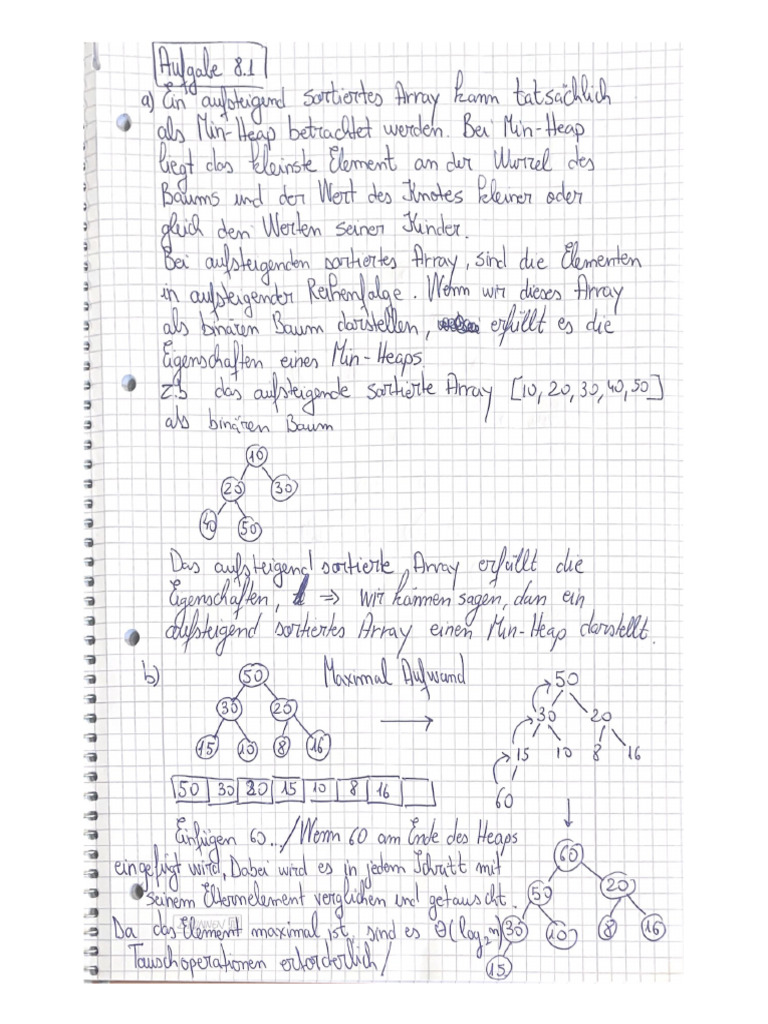 Aufgabe 8.1
a) Ein aufsteigend sortiertes Array kann tatsächlich
als Min-Heap betrachtet werden. Bei Min-Heap
liegt das kleinste Element an der Wurzel des
Baums und der Wert des Knotes kleiner oder
gleich den Werten seiner Kinder.
Bei aufsteigenden sortiertes Array, sind die Elementen
in aufsteigender Reihenfolge. Wenn wir dieses Array
als binären Baum darstellen, erfüllt es die
Eigenschaften eines Min-Heaps.
z.b das aufsteigende sortierte Array [10, 20, 30, 40, 50]
als binären Baum
10
20 30
40 50
Das aufsteigend sortierte Array erfüllt die
Eigenschaften, => wir kännen sagen, dan ein
aufsteigend sortiertes Array einen Min-Heap darstellt.
b) Maximal Aufwand
50
30 20
15 10 8 16
50 30 20 15 10 8 16
50
30 20
15 10 8 16
60
Einfügen 60.../Wenn 60 am Ende des Heaps
eingefügt wird, Dabei wird es in jedem Schritt mit
seinem Elternelement verglichen und getauscht.
Da das Element maximal ist, sind es Θ(log₂n)
Tauschoperationen erforderlich/
60
50 20
30 10 8 16
15